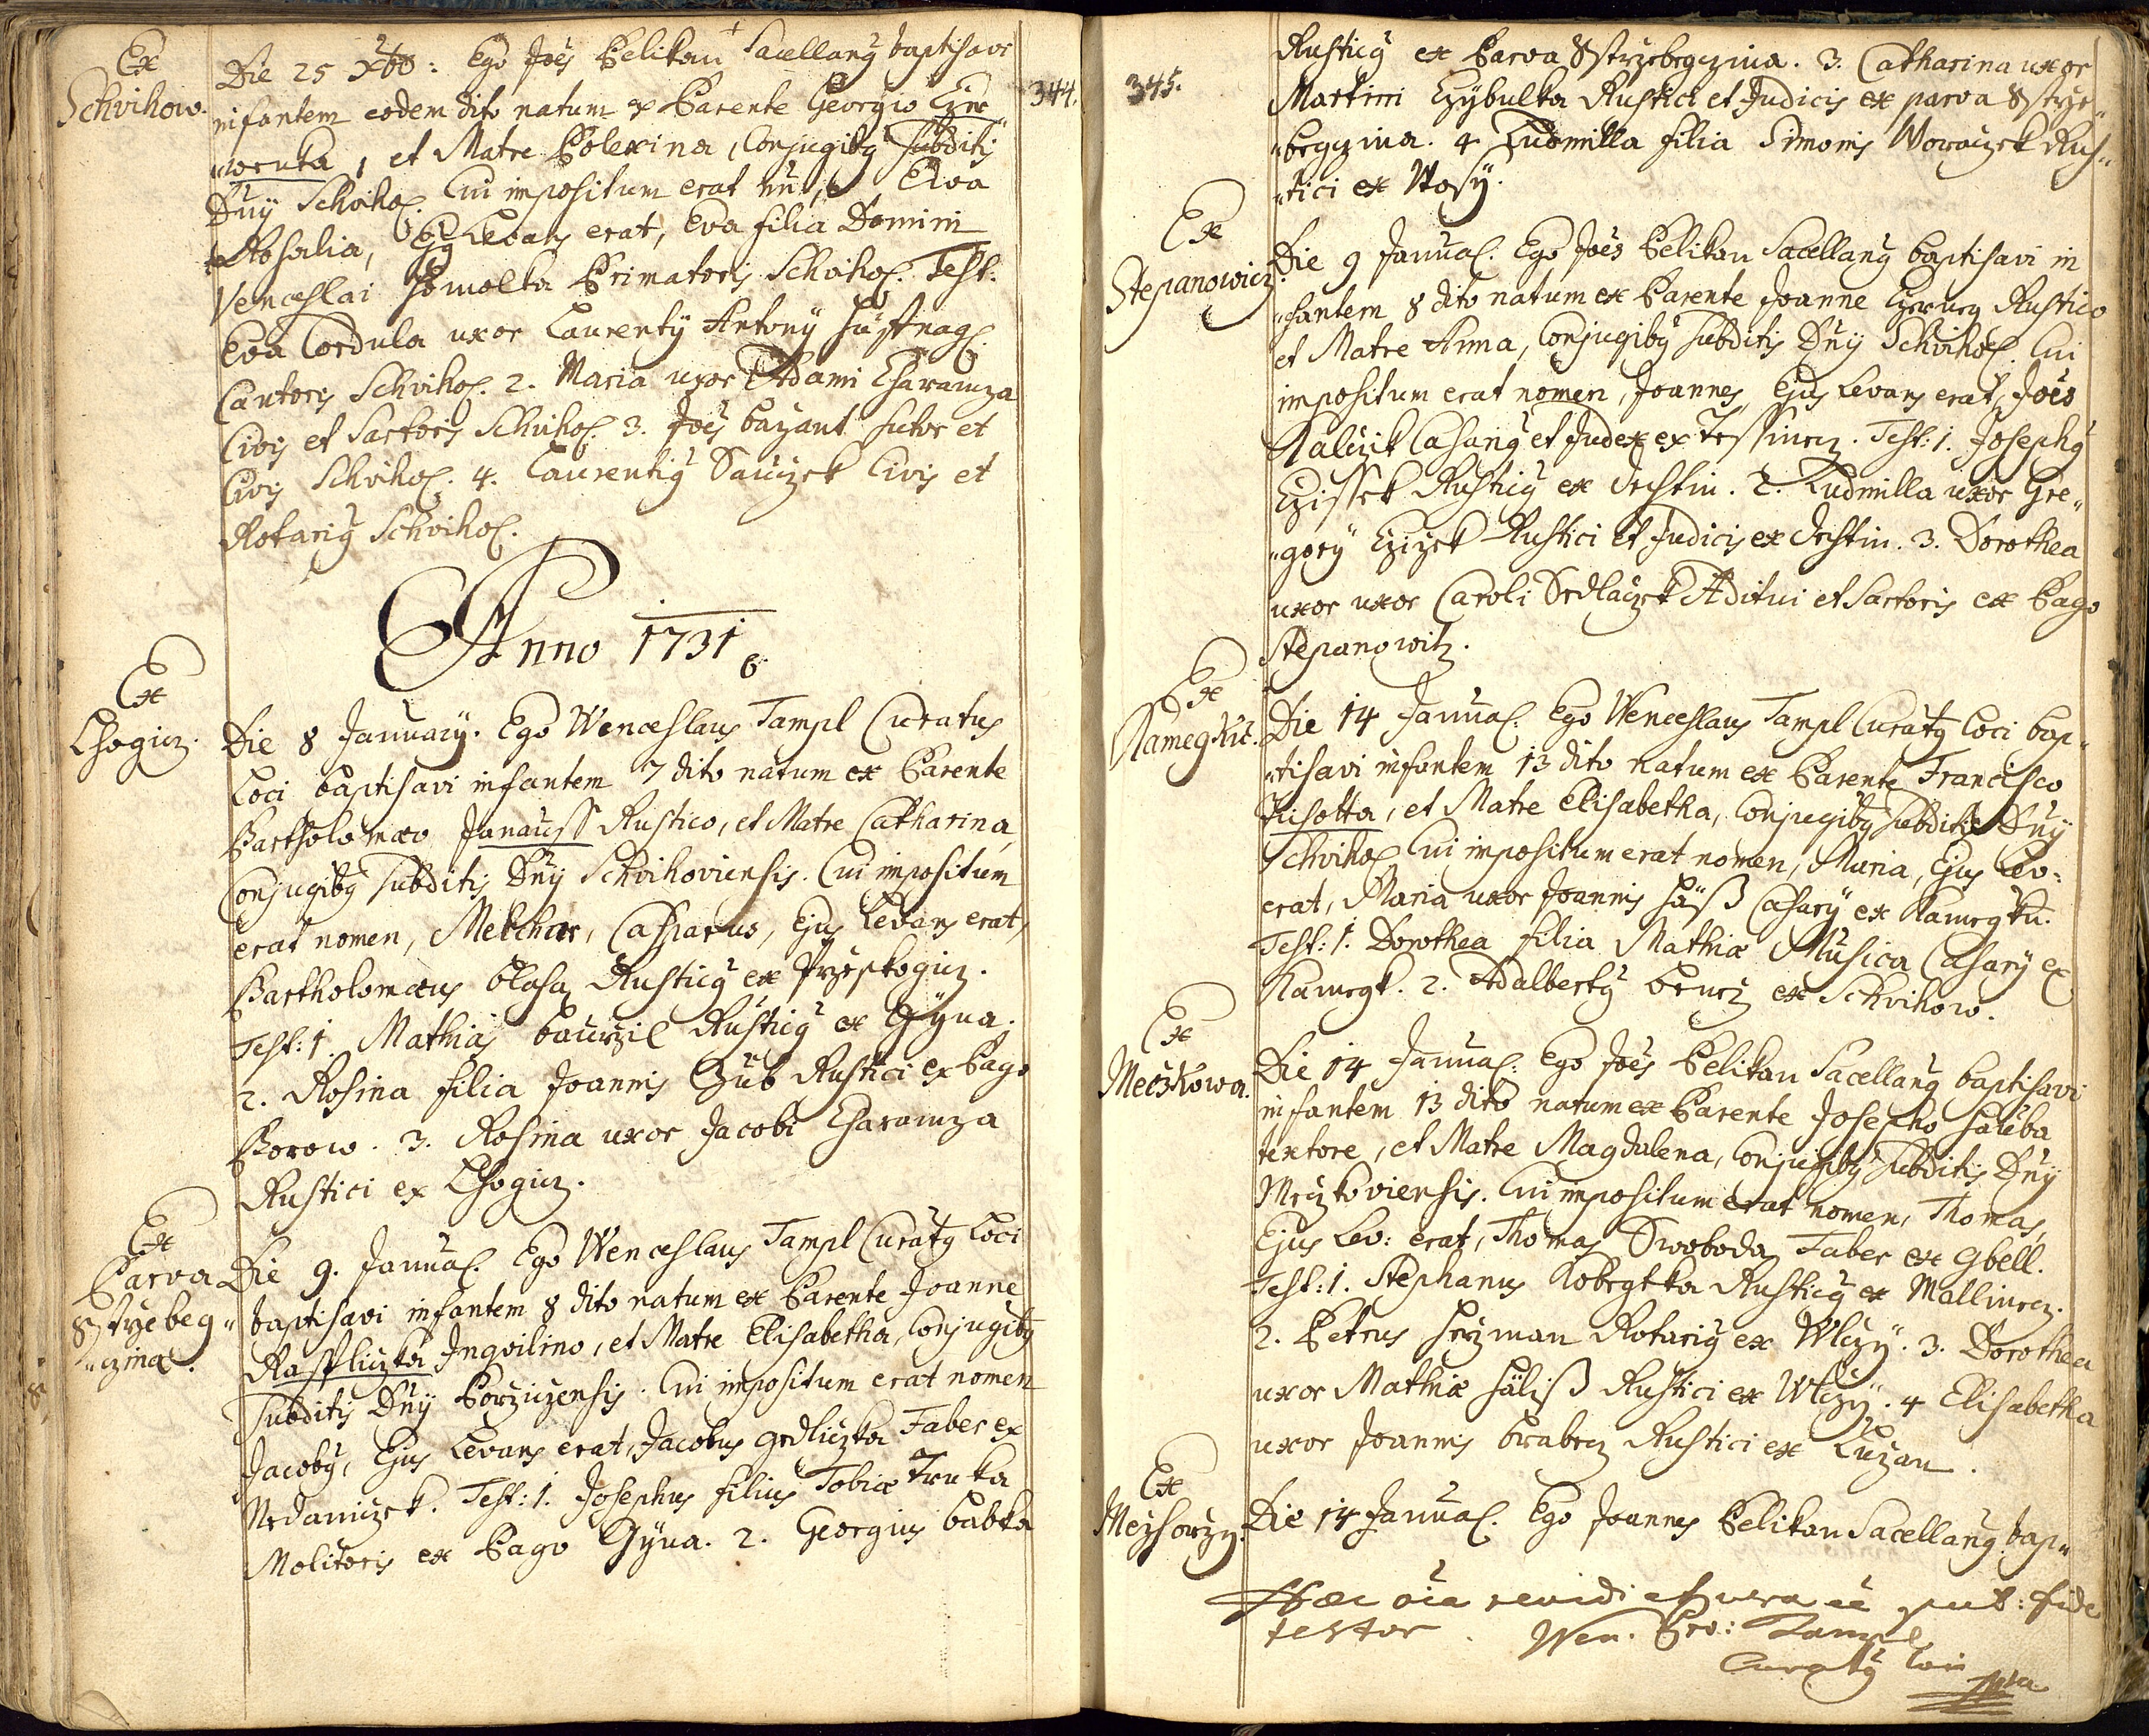 344.
Ex
Schvihow.
Die 25 Xbr: Ego Joēs Pelikan Sacellanꝯ baptisavi
infantem eodem dito natum ex Parente Georgio
et Matre Polexina, Conjugibꝯ subditis
Dn̄ij Schvihoꝭ. Cui impositum erat Elva
Rosalia, Ejꝯ Levans erat, Eva filia Domini
Venceslai Homolka Primatoris Schvihoꝭ. Test:
Eva Cordula uxor Laurentÿ Antonÿ
Cantoris Schvihoꝭ. 2. Maria uxor Adami Charamza
Civis et Sartoris Schvihoꝭ. 3. Joēs bayant sutor et
Civis Schvihoꝭ. 4. Laurentiꝯ Sauczek Civis et
Rotariꝯ Schvihoꝭ.
Anno 1731
Ex
Chogicz.
Die 8 Januarÿ. Ego Wenceslaus Tampl Curatus
Loci baptisavi infantem 7 dito natum ex Parente
Bartholomæo Janauss Rustico, et Matre Catharina,
Conjugibꝯ subditis Dn̄ij Schvihoviensis. Cui impositum
erat nomen, Melchar, Casparus, Ejus Levans erat,
Bartholomæus blaha Rusticꝯ ex
Test: 1. Mathias baurzil Rusticꝯ ex Gÿna.
2. Rosina filia Joannis Czub Rustici ex Pago
Borow. 3. Rosina uxor Jacobi Charamza
Rustici ex Chogicz.
Ex
Parva
Ustrzebeg„
„czina.
Die 9. Januaꝭ. Ego Wenceslaus Tampl Curatꝯ Loci
baptisavi infantem 8 dito natum ex Parente Joanne
Raspliczka Inqvilino, et Matre Elisabetha, Conjugibꝯ
Subditis Dn̄ij Porziczensis. Cui impositum erat nomen
Jacobꝯ, Ejus Levans erat, Jacobus gedliczka Faber ex
Nedaniczek. Test: 1. Josephus filius Tobiæ Trnka
Molitoris ex Pago Gÿna. 2. Georgius babka
345.
Rusticꝯ ex Parva Ustrzebegczina. 3. Catharina uxor
Martini Czÿbulka Rustici et Judicis ex parva Ustrze„
„begczina. 4 Ludmilla filia Simonis Woraczek Rus„
„tici ex Wosÿ.
Ex
Stepanowicz.
Die 9 Januaꝭ: Ego Joēs Pelikan Sacellanꝯ baptisavi in
„fantem 8 dito natum ex Parente Joanne Czernꝯ Rustico
et Matre Anna, Conjugibꝯ subditis Dn̄ij Schvihoꝭ. Cui
impositum erat nomen, Joannes, Ejus Levans erat, Joēs
Kalczik Casariꝯ et Judex ex Tessinicz. Test: 1. Josephꝯ
Czissek Rusticꝯ ex Destin. 2. Ludmilla uxor Gre„
„gorÿ Czizek Rustici et Judicis ex Destin. 3. Dorothea
uxor uxor Caroli Sedlaczek Æditui et Sartoris ex Pago
Stepanowitz.
Ex
Kamegku.
Die 14 Januaꝭ: Ego Wenceslaus Tampl Curatꝯ Loci bap„
„tisavi infantem 13 dito natum ex Parente Francisco
et Matre Elisabetha, Conjugibꝯ subditis Dn̄ij
Schvihoꝭ Cui impositum erat nomen, Maria, Ejus Lev:
erat, Maria uxor Joannis Casarÿ ex Kamegku.
Test: 1. Dorothea filia Mathiæ Musica Casarÿ ex
Kamegk. 2. Adalbertꝯ benesz ex Schvihow.
Ex
Meczkowa.
Die 14 Januaꝭ: Ego Joēs Pelikan Sacellanꝯ baptisavi
infantem 13 dito natum ex Parente Josepho Hauba
textore, et Matre Magdalena, Conjugibꝯ subditis Dn̄ij
Meczkoviensis. Cui impositum erat nomen, Thomas,
Ejus Lev: erat, Thomas Swoboda Faber ex gbell.
Test: 1. Stephanus Kobegtka Rusticꝯ ex Mallinecz.
2. Petrus Herzman Rotariꝯ ex Wlczÿ. 3. Dorothea
uxor Mathiæ Haliß Rustici ex Wlczÿ. 4 Elisabetha
uxor Joannis brabecz Rustici ex Luzan.
Ex
Mezhorzy.
Die 14 Januaꝭ. Ego Joannes Pelikan Sacellanꝯ bap„
Hæc oīa revidi et vera ēē pub: fide
testor. Wen. Pro: Tampl
Curatꝯ loci